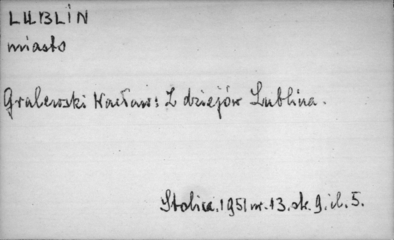 LUBLIN
miasto
Grabowski Wacław: Z dziejów Lublina.
Stolica. 1951 nr. 13. str. 9. il. 5.